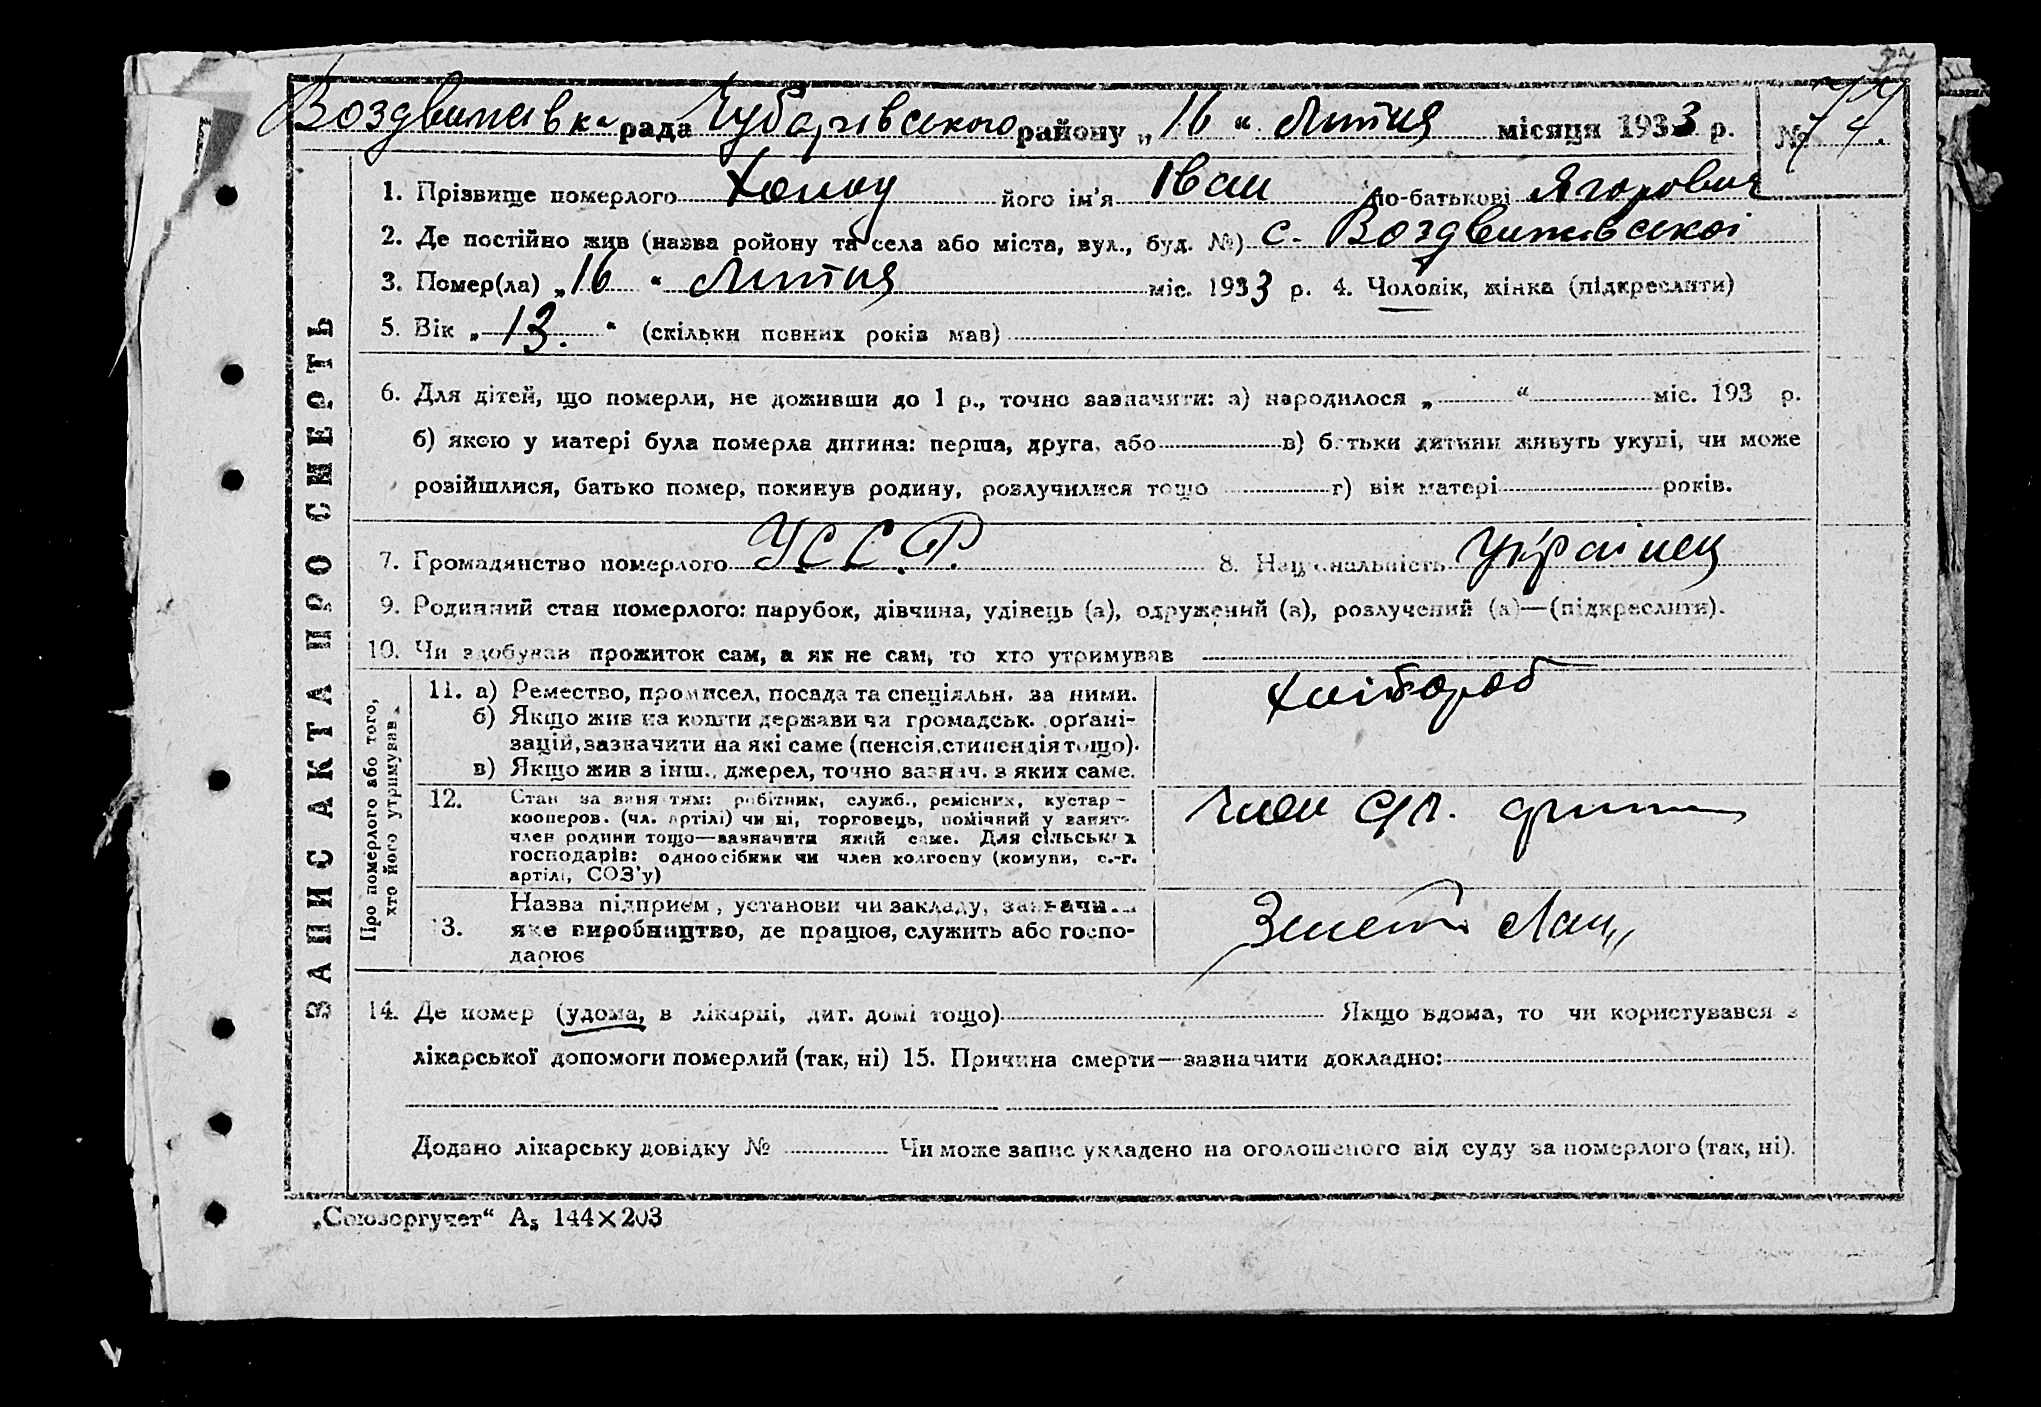 Воздвижівка рада Чубарівського району „16“ Литня місяця 1933 р. № 74.
1. Прізвище померлого його ім'я Іван по-батькові Ягорович
2. Де постійно жив (назва ройону та села або міста, вул., буд. №) с. Воздвижівської
3. Помер(ла) „16“ Литня міс. 1933 р. 4. Чоловік, жінка (підкреслити)
5. Вік „13.“ (скільки повних років мав)
6. Для дітей, що померли, не доживши до 1 р., точно зазначити: а) народилося „ “ міс. 193 р.
б) якою у матері була померла дитина: перша, друга, або в) батьки дитини живуть укупі, чи може
розійшлися, батько помер, покинув родину, розлучилися тощо г) вік матері років.
7. Громадянство померлого УССР. 8. Національність Українец
9. Родинний стан померлого: парубок, дівчина, удівець (а), одружений (а), розлучений (а)—(підкреслити).
10. Чи здобував прожиток сам, а як не сам, то хто утримував
ЗАПИС АКТА ПРО СМЕРТЬ
Про померлого або того,
хто його утримував.
11. а) Ремество, промисел, посада та спеціяльн. за ними.
б) Якщо жив на кошти держави чи громадськ. орґані-
зацій, зазначити на які саме (пенсія, стипендія тощо).
в) Якщо жив з інш. джерел, точно зазнач. з яких саме.
Хлібороб
12. Стан за заняттям: робітник, служб., ремісник, кустар-
кооперов. (чл. артілі) чи ні, торговець, помічний у занят.
член родини тощо—зазначити який саме. Для сільських
господарів: одноосібник чи член колгоспу (комуни, с.-г.
артілі, СОЗ'у)
член
13. Назва підприєм, установи чи закладу, зазначи...
яке виробництво, де працює, служить або госпо-
дарює
Лан„
14. Де помер (удома, в лікарні, дит. домі тощо) Якщо вдома, то чи користувався з
лікарської допомоги померлий (так, ні) 15. Причина смерти—зазначити докладно:
Додано лікарську довідку № Чи може запис укладено на оголошеного від суду за померлого (так, ні).
„Союзоргучет“ А₅ 144×203